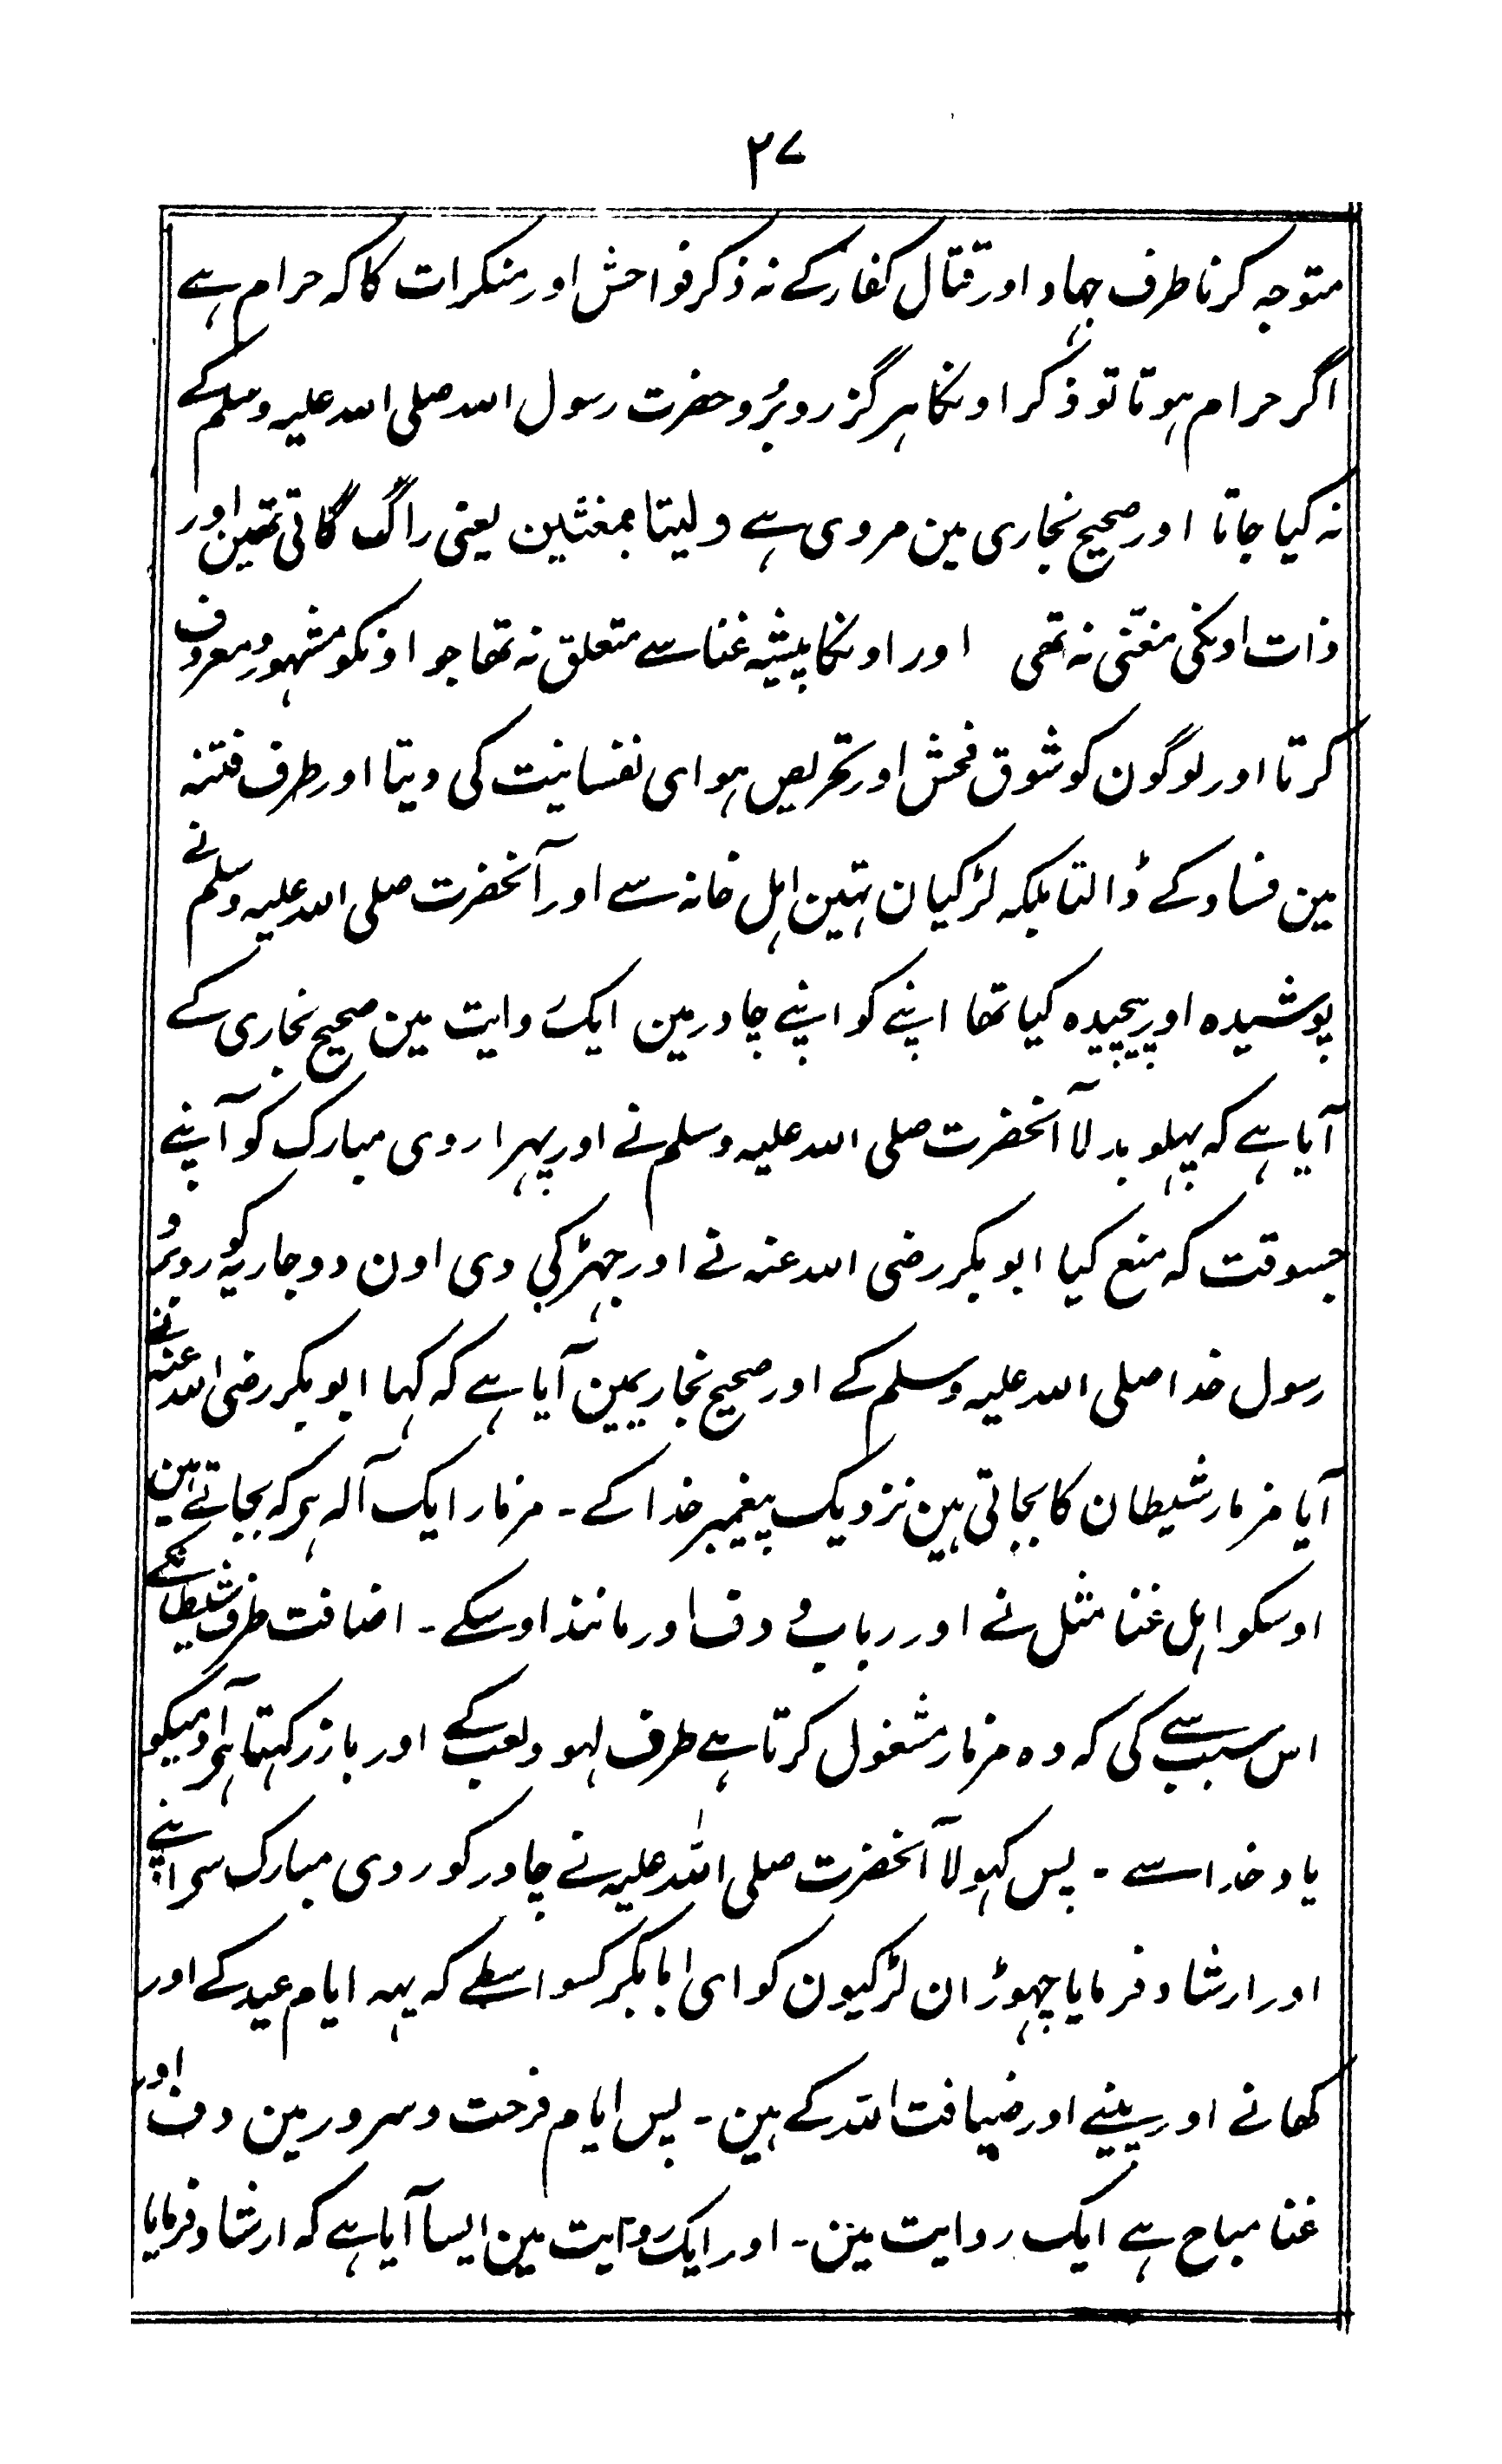 ۲۷
متوجہ کرنا طرف جہاد اور قتال کفار کے نہ ذکر فواحش اور منکرات کا کہ حرام ہے
اگر حرام ہوتا تو ذکر اونکا ہرگز روبرُو حضرت رسول اللہ صلی اللہ علیہ وسلم کے
نہ کیا جاتا اور صحیح بخاری مین مروی ہے ولیتا بمغنیین یعنی راگ گاتی تھین اور
ذات اونکی مغنّی نہ تھی اور اونکا پیشہ غنا سے متعلق نہ تھا جو اونکو مشہور ومعروف
کرتا اور لوگون کو شوق فحش اور تحریص ہوای نفسانیت کی دیتا اور طرف فتنہ
مین فساد کے ڈالتا بلکہ لڑکیان تہین اہل خانہ سے اور آنحضرت صلی اللہ علیہ وسلم نے
پوشیدہ اور پیچیدہ کیا تھا اپنے کو اپنے چادر مین ایک روایت مین صحیح بخاری کے
آیا ہے کہ پہلو بدلا آنحضرت صلی اللہ علیہ وسلم نے اور پہرا روی مبارک کو آپنے
جسوقت کہ منع کیا ابو بکر رضی اللہ عنہ نے اور جہڑکی دی اون دو جاریہ کو روبرُو
رسول خدا صلی اللہ علیہ وسلم کے اور صحیح بخاریمین آیا ہے کہ کہا ابو بکر رضی اللہ عنہ نے
آیا مزمار شیطان کا بجاتی ہین نزدیک پیغمبر خدا کے ۔ مزمار ایک آلہ ہر کہ بجاتے ہین
اوسکو اہل غنا مثل نے اور رباب و دف اور مانند اوسکے ۔ اضافت طرف شیطانکے
اس سبب سے کی کہ وہ مزمار مشغول کرتا ہے طرف لہو ولعب کے اور باز رکہتا ہی آدمیکو
یاد خدا سے ۔ پس کہولا آنحضرت صلی اللہ علیہ نے چادر کو روی مبارک سی اپنے
اور ارشاد فرمایا چہوڑ ان لڑکیون کو ای ابا بکر کسواسطے کہ یہہ ایام عید کے اور
کھانے اور پینے اور ضیافت اللہ کے ہین ۔ پس ایام فرحت وسرور مین دف اور
غنا مباح ہے ایک روایت مین ۔ اور ایک روایت مین ایسا آیا ہے کہ ارشاد فرمایا